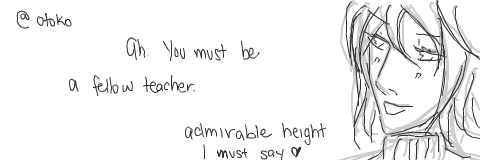 @ otoko
ah. You must be
a fellow teacher.
admirable height
I must say ♥